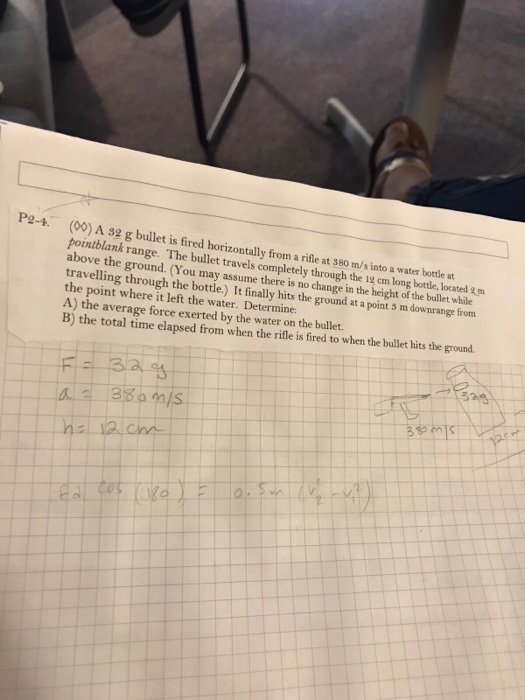 P2-4. (◊◊) A 32 g bullet is fired horizontally from a rifle at 380 m/s into a water bottle at
pointblank range. The bullet travels completely through the 12 cm long bottle, located 2 m
above the ground. (You may assume there is no change in the height of the bullet while
travelling through the bottle.) It finally hits the ground at a point 3 m downrange from
the point where it left the water. Determine:
A) the average force exerted by the water on the bullet.
B) the total time elapsed from when the rifle is fired to when the bullet hits the ground.
F = 32 g
a = 380 m/s
h = 12 cm
32g
380 m/s
12cm
Fd cos (180) = 0.5m (v₂² - v₁²)